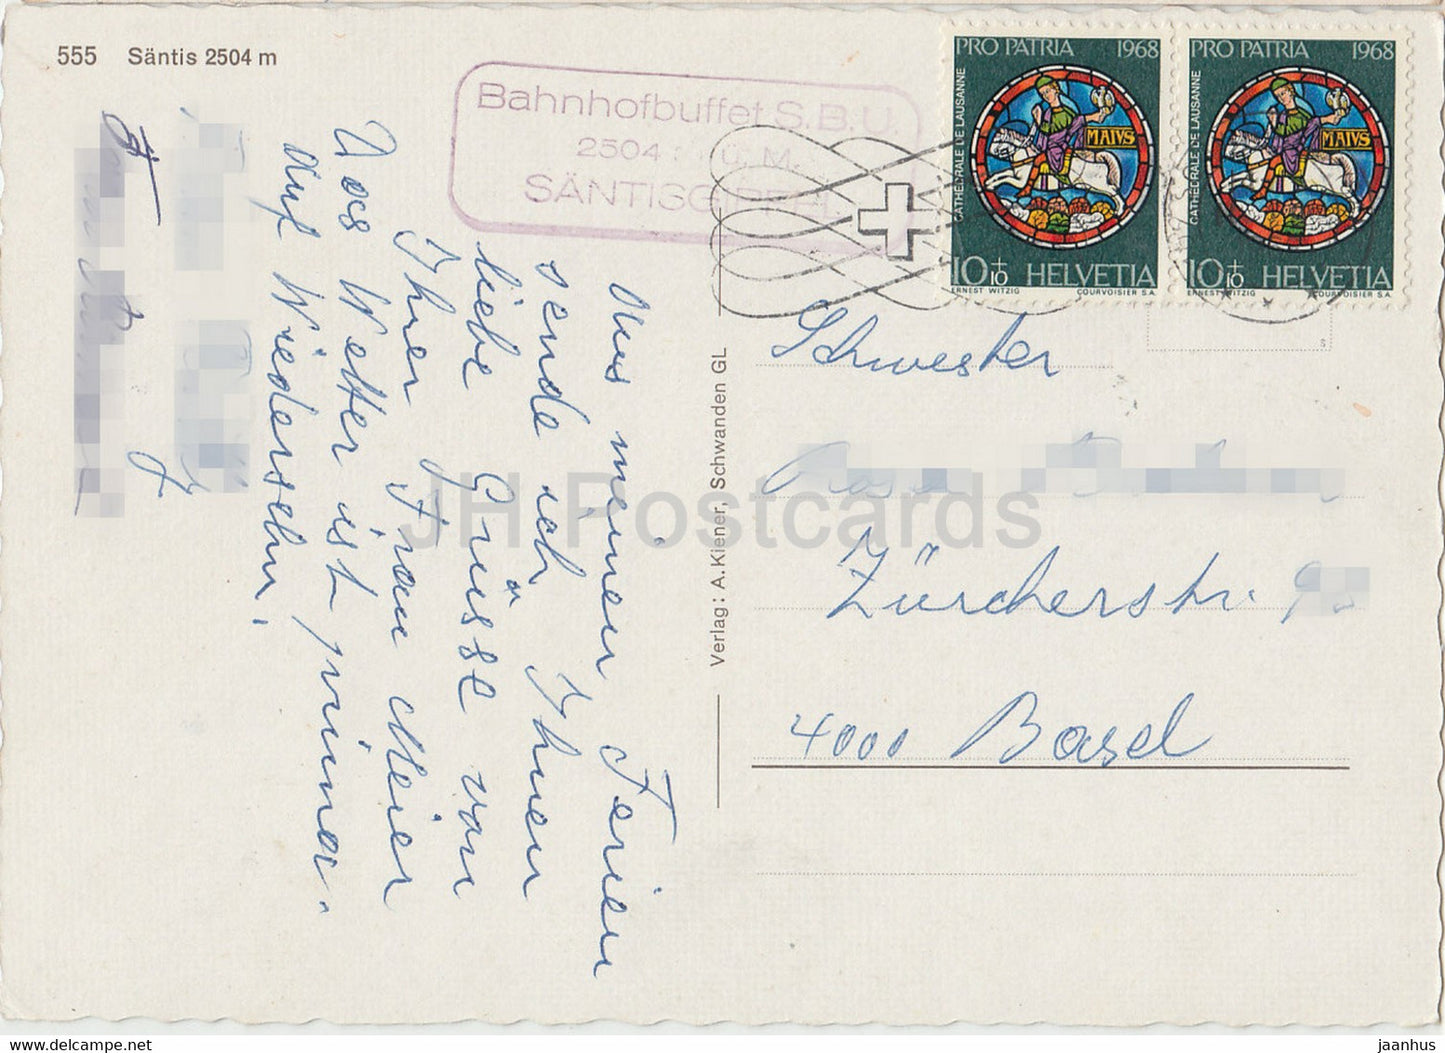 555 Säntis 2504 m
Bahnhofbuffet S.B.U.
2504 ü. M.
SÄNTISGIPFEL
PRO PATRIA 1968
CATHÉDRALE DE LAUSANNE
MAIVS
10+10 HELVETIA
ERNEST WITZIG COURVOISIER S.A.
PRO PATRIA 1968
CATHÉDRALE DE LAUSANNE
MAIVS
10+10 HELVETIA
ERNEST WITZIG COURVOISIER S.A.
S
Aus meinen Ferien
sende ich Ihnen
liebe Grüsse von
Ihrer Frau Meier
Das Wetter ist prima.
Auf Wiedersehn.
Verlag: A. Kiener, Schwanden GL
Schwester
Zürcherstr.
4000 Basel
JH Postcards
www.delcampe.net
jaanhus